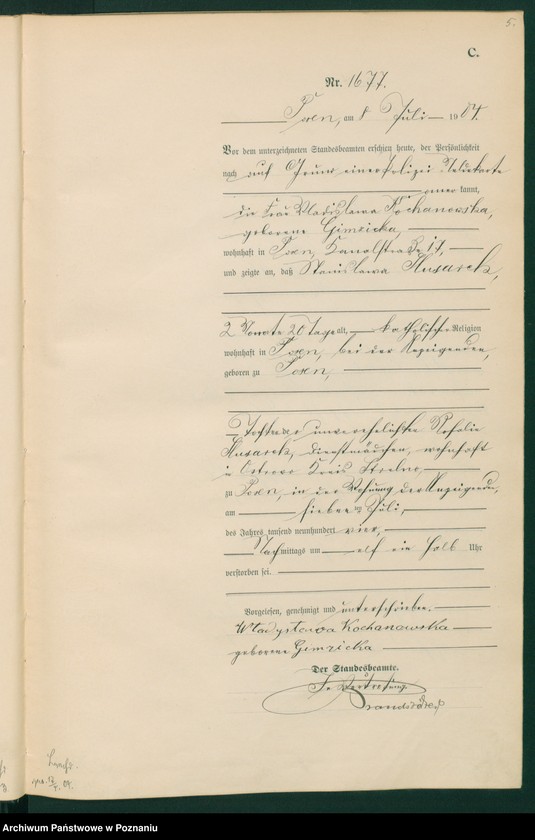 5.
C.
Nr. 1677.
Posen, am 8 Juli 1904.
Vor dem unterzeichneten Standesbeamten erschien heute, der Persönlichkeit
nach auf Grund einer Polizei Meldekarte
anerkannt,
die Frau Wladislawa Kochanowska,
geborene Gimzicka,
wohnhaft in Posen, Kanalstraße 17,
und zeigte an, daß Stanislawa Husarek,
2 Monate 20 Tage alt, katholischer Religion
wohnhaft in Posen, bei der Anzeigenden,
geboren zu Posen,
Tochter der unverehelichten Rosalie
Husarek, Dienstmädchen, wohnhaft
in Ostrowo Kreis Strelno,
zu Posen, in der Wohnung der Anzeigenden,
am sieben ten Juli,
des Jahres tausend neunhundert vier,
Nachmittags um elf ein halb Uhr
verstorben sei.
Vorgelesen, genehmigt und unterschrieben.
Władysława Kochanowska
geborene Gimzicka
Der Standesbeamte.
In Vertretung
Archiwum Państwowe w Poznaniu